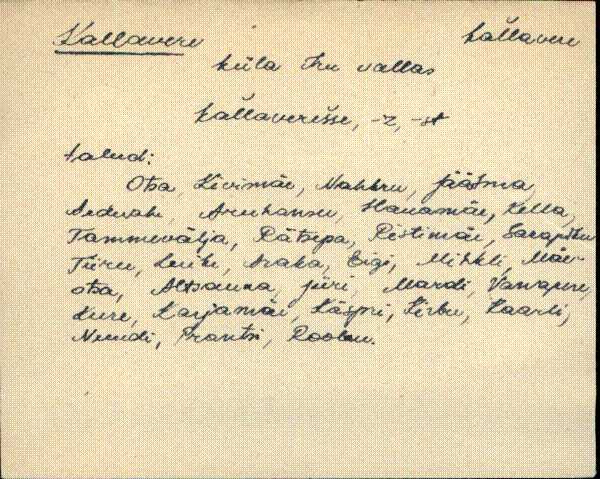 Kallavere kal̆lavere
küla Iru vallas
kal̆laveresse, -z, -st
talud:
Otsa, Kivimäe, Nahkru, Jääsma,
Aeduahe, Aruhansu, Hanamäe, Kella,
Tammevälja, Rätsepa, Ristimäe, Sarapiku
Tiiru, Araka, Sigi, Mihkli, Mäe-
otsa, Altsauna, Jüri, Mardi, Vanapere,
Kure, Karjamäe, Käspri, Kirbu, Kaarli,
Neeudi, Prantsi, Roobu.